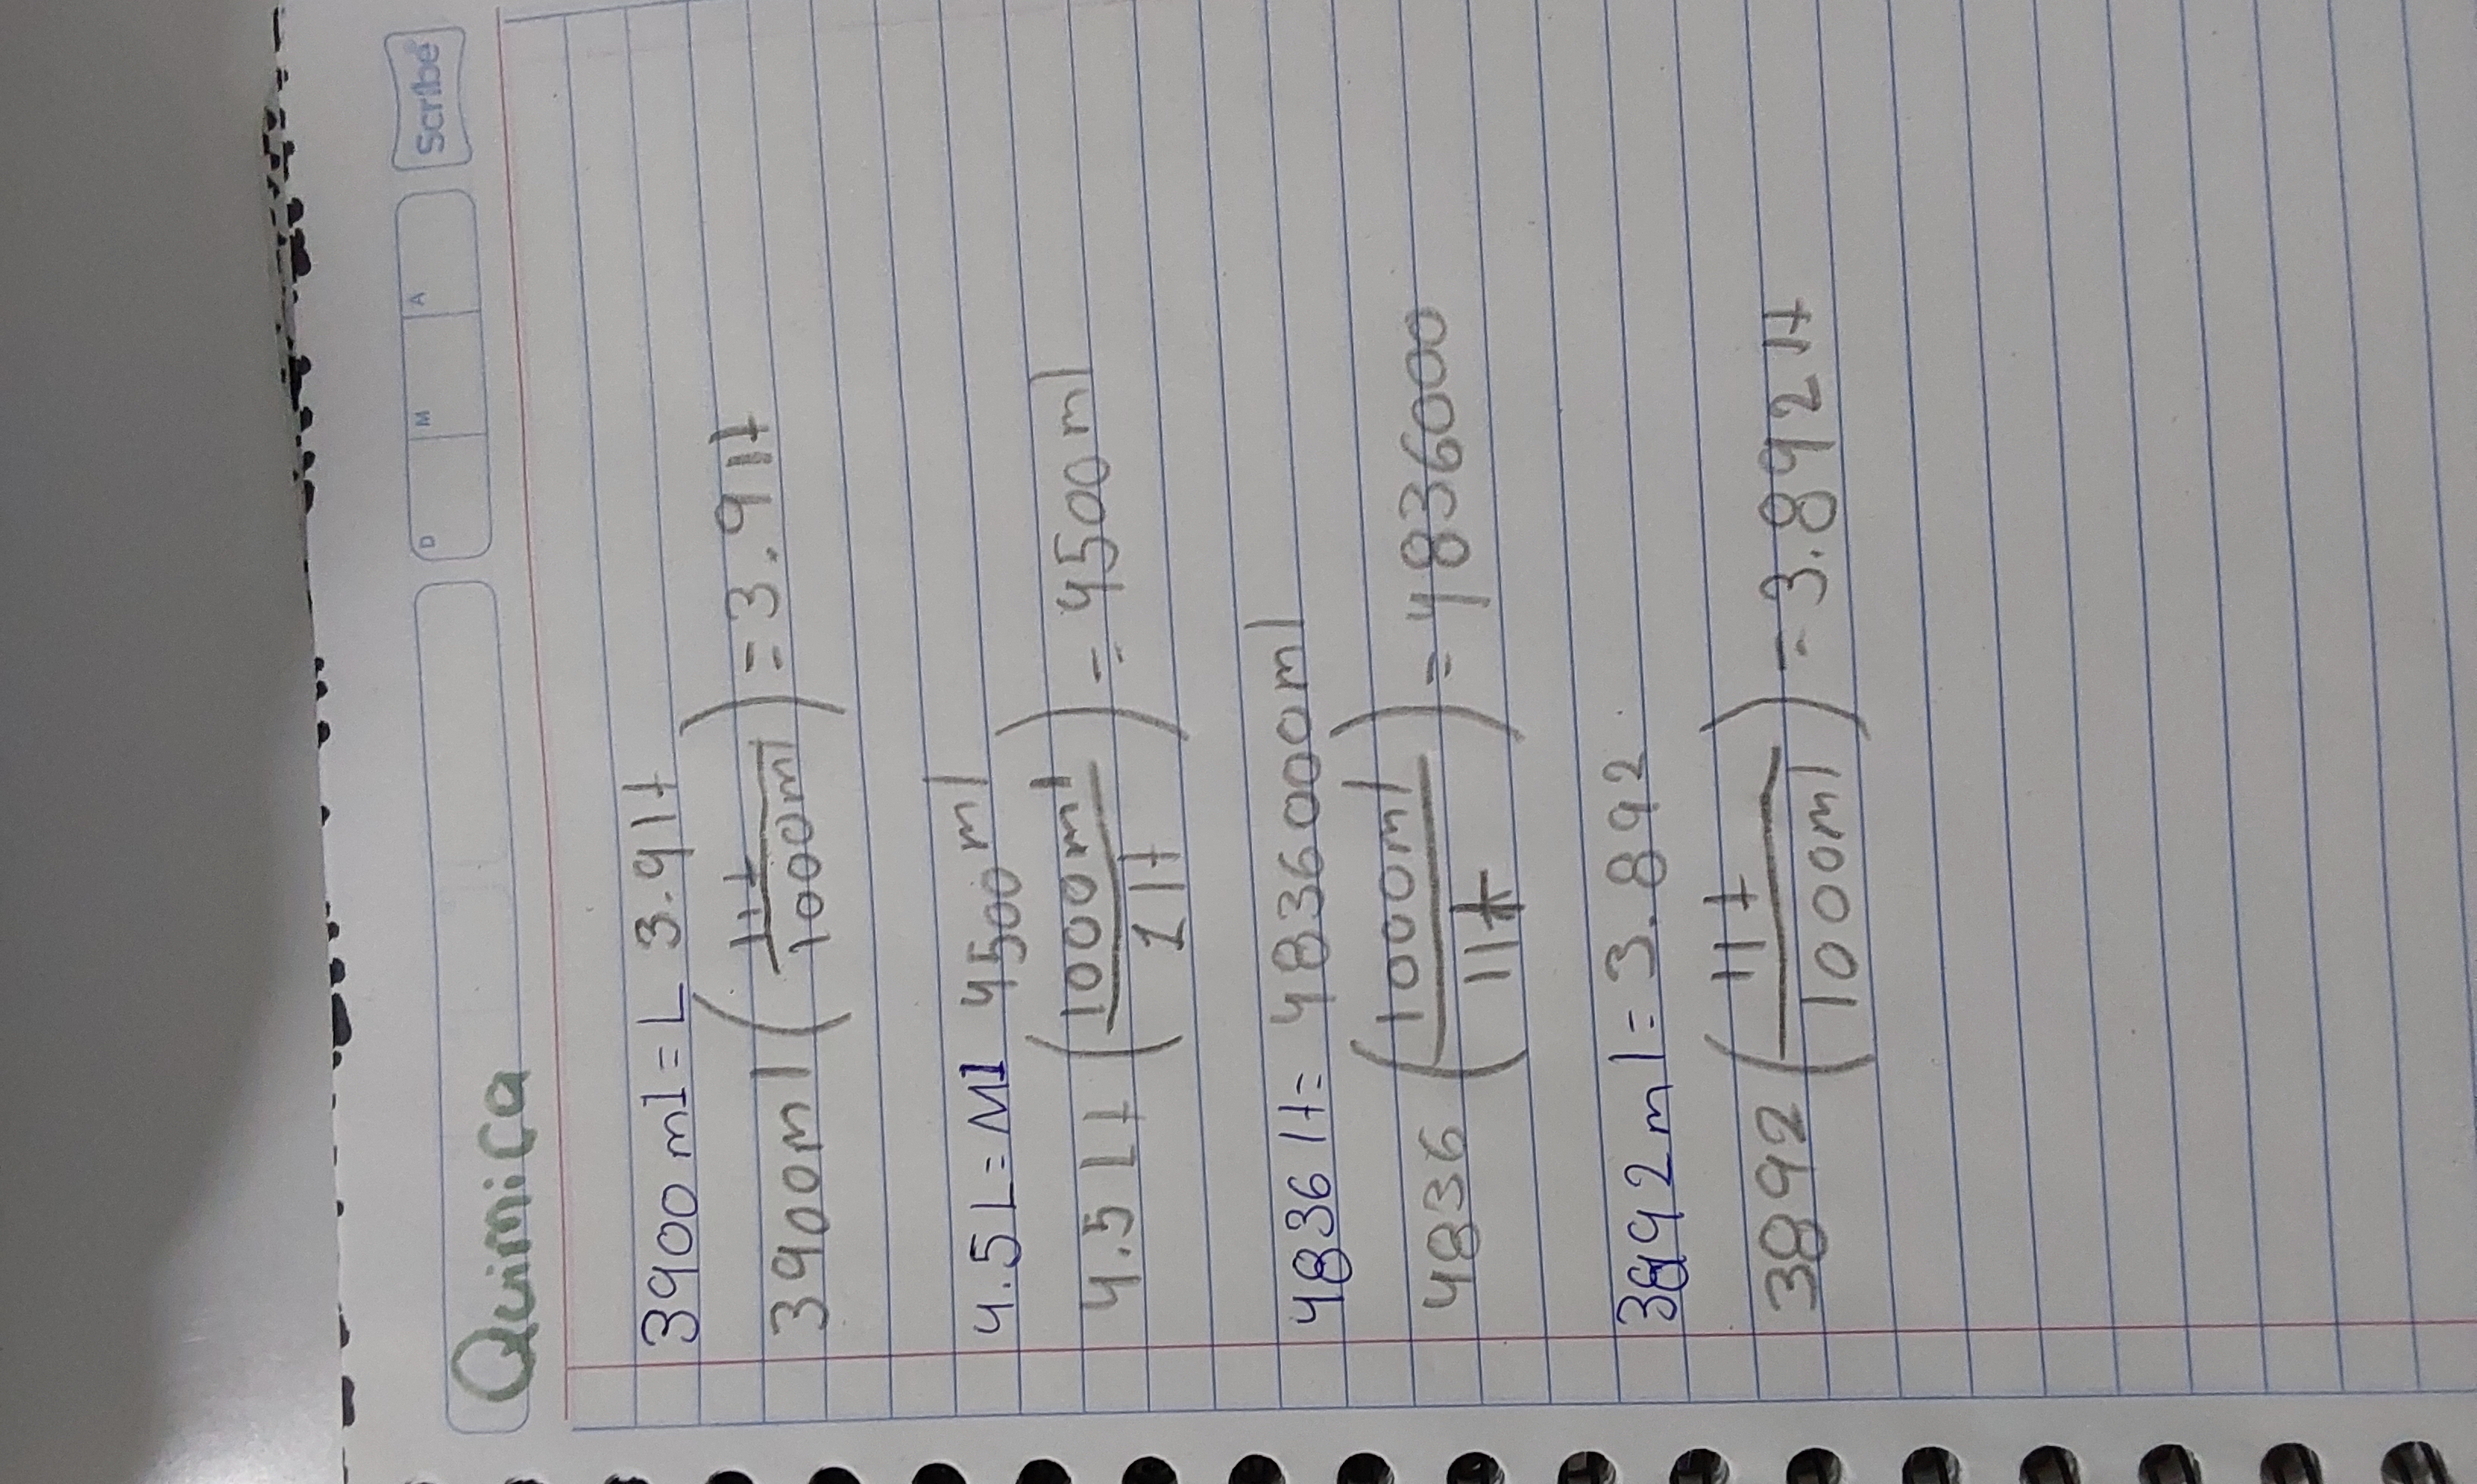 Scribe®
D M A
Quimica
3900 ml = L 3.9 lt
3900 ml ( 1 lt / 1000 ml ) = 3.9 lt
4.5 L = Ml 4500 ml
4.5 Lt ( 1000 ml / 1 lt ) = 4500 ml
4836 lt = 4836000 ml
4836 ( 1000 ml / 1 lt ) = 4836000
3892 ml = 3.892
3892 ( 1 lt / 1000 ml ) = 3.892 lt